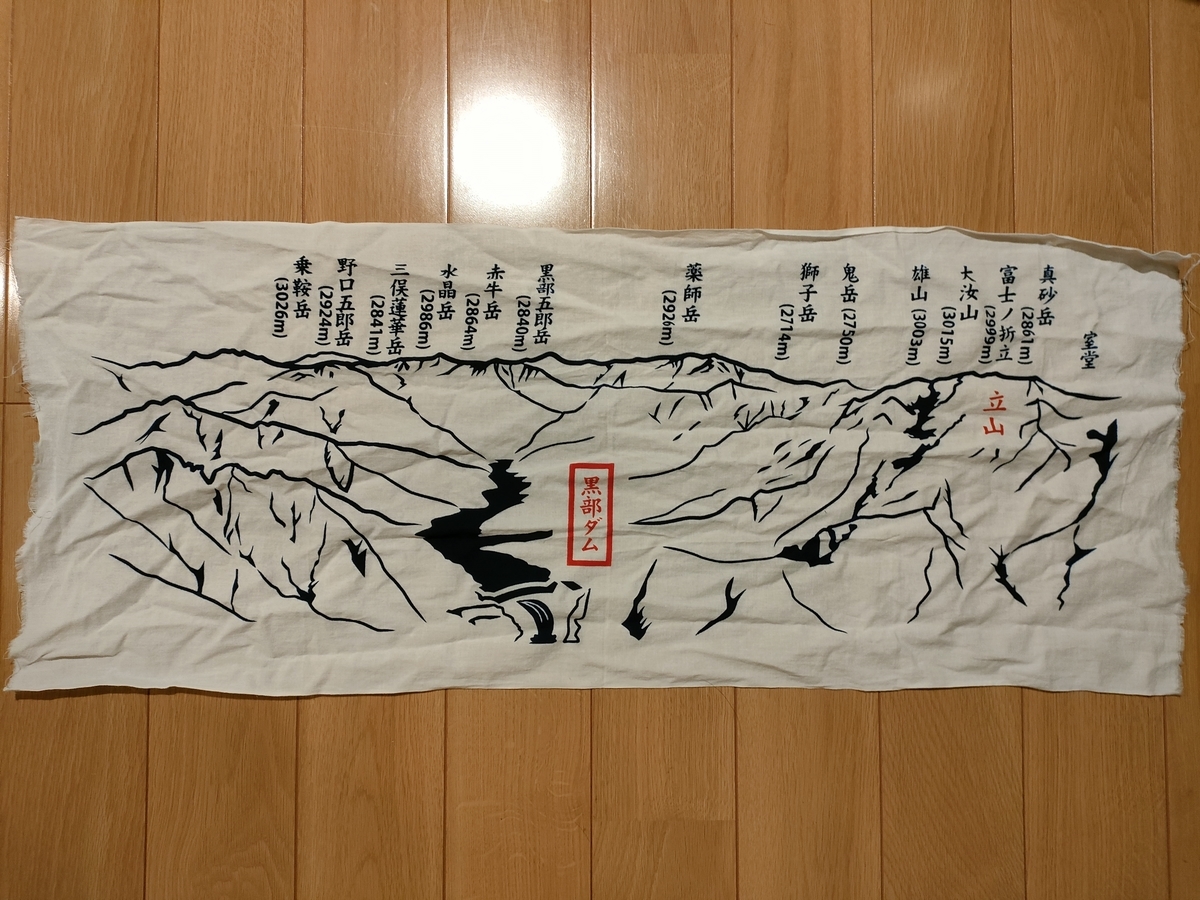 乗鞍岳
(3026m)
野口五郎岳
(2924m)
三俣蓮華岳
(2841m)
水晶岳
(2986m)
赤牛岳
(2864m)
黒部五郎岳
(2840m)
薬師岳
(2926m)
獅子岳
(2714m)
鬼岳 (2750m)
雄山 (3003m)
大汝山
(3015m)
富士ノ折立
(2999m)
真砂岳
(2861m)
室堂
立山
黒部ダム